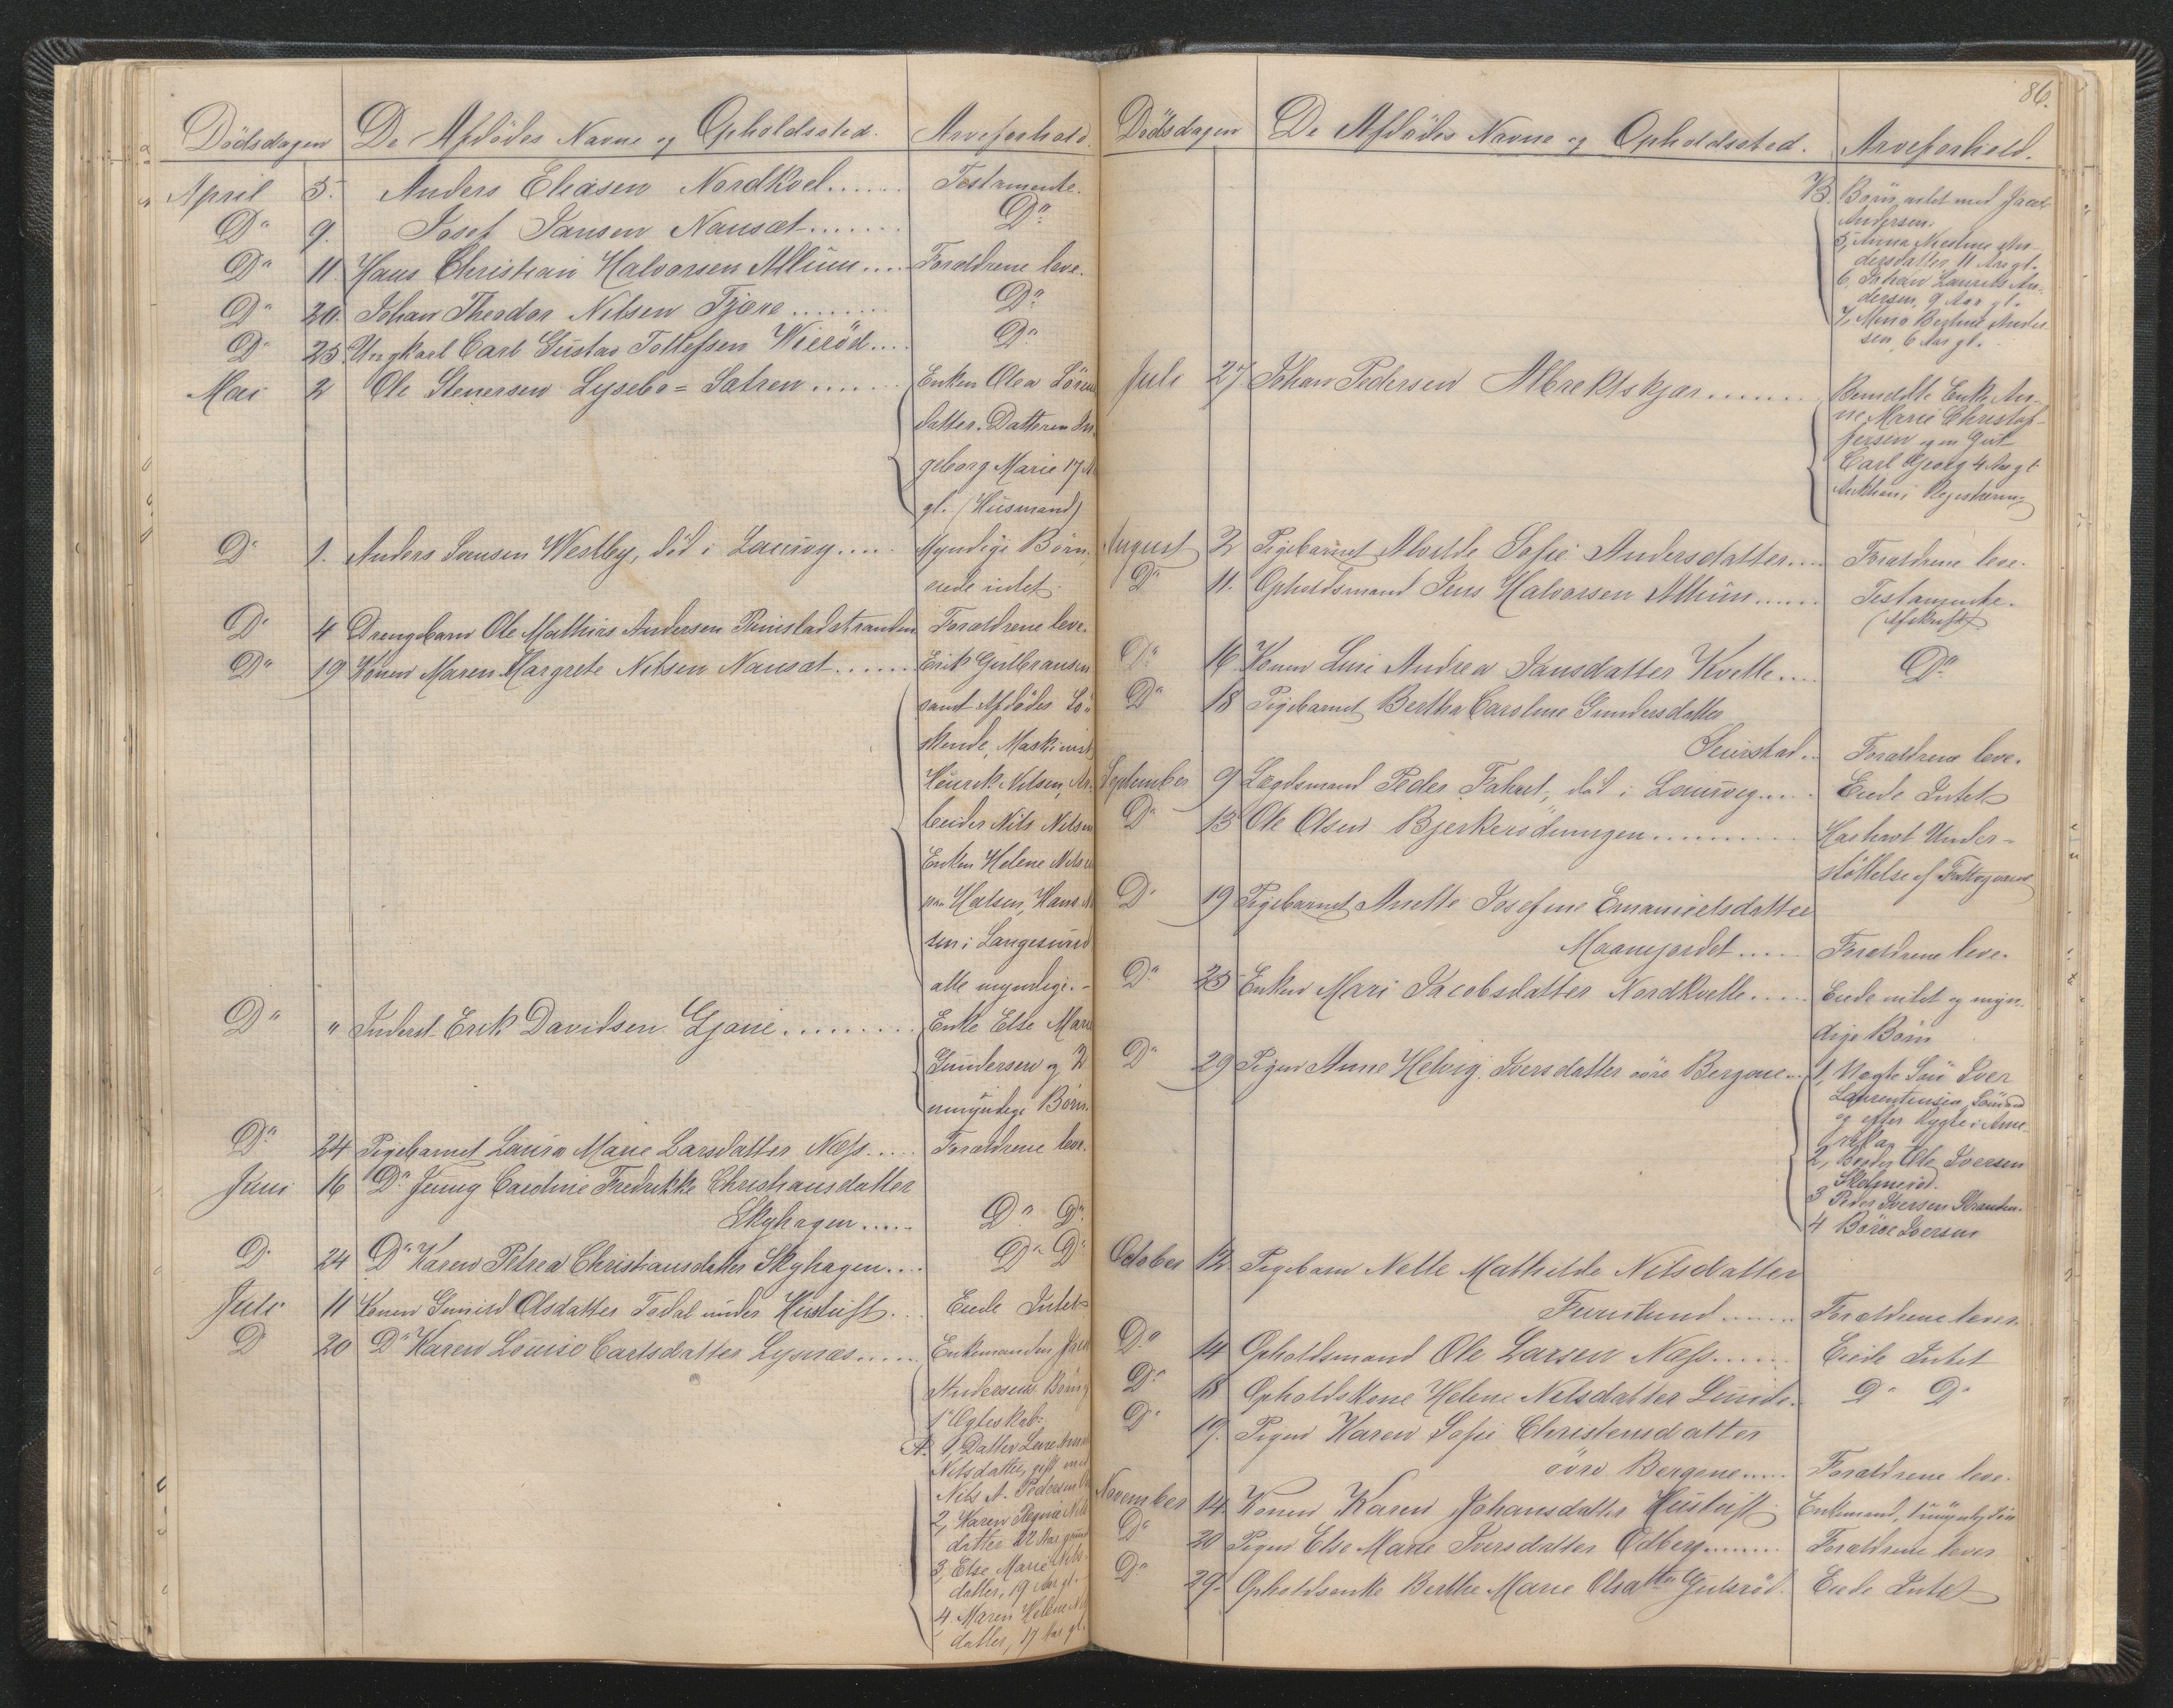 Dödsdagen De Afdödes Navne og Opholdssted. Arveforhold.
April 5. Anders Eliasen Nordkvel...... Testamente.
Do 9. Josef Jansen Nansæt....... Do
Do 11. Hans Christian Halvorsen Allum.... Forældrene leve.
Do 20. Johan Theodor Nilsen Tjøre........ Do
Do 25. Ungkarl Carl Gustav Tollefsen Wierød.... Do
Mai 2 Ole Stenersen Lysebo=Sætren....... Enken Olea Sörens
datter. Datteren In
geborg Marie 17 A
gl. (Husmand)
Do 1. Anders Svensen Westby, död i Laurvig.... Myndige Börn,
eiede intet.
Do 4 Drengebarn Ole Mathias Andersen Rimstadstranden Forældrene leve.
Do 19 Konen Maren Margrete Nilsen Nansæt...... Erik Gulbransen
samt Afdödes Sö-
skende, Maskinist
Henrik Nilsen, Ar-
beider Nils Nilsen
Enken Helene Nilsen
paa Halsen, Hans Ni
sen i Langesund
alle myndige.-
Do " Inderst Erik Davidsen Gjone......... Enke Else Marie
Gundersen og 2
umyndige Börn.
Do 24 Pigebarnet Laura Marie Larsdatter Næss..... Forældrene leve.
Juni 16 Do Jenny Caroline Fredrikke Christiansdatter
Skyhagen..... Do Do
Do 24 Do Karen Petrea Christiansdatter Skyhagen.... Do Do
Juli 11 Konen Gunild Olsdatter Todal under Hustuft... Eiede Intet
Do 20 Do Karen Louise Carlsdatter Lysnæs...... Enkemanden Jacob
Andersen. Börn af
1ste Ægteskab:
A. 1, Datter Lene
Nilsdatter, gift med
Nils A. Pedersen
2, Karen Regine Nils
datter 22 Aar
3, Else Marie Nils-
datter, 19 Aar gl.
4 Maren Helene Nils
datter, 17 Aar gl.
86.
Dödsdagen De Afdödes Navne og Opholdssted. Arveforhold.
B. Börn, avlet med Jacob
Andersen.
5, Anna Nicoline An-
dersdatter 11 Aar gl.
6, Johan Laurits An-
dersen, 9 Aar gl.
7, Mina Bertine Ander
sen, 6 Aar gl.
Juli 27 Johan Pedersen Albrektskjær....... Bemeldte Enke An-
ne Marie Christof-
fersen og en Gut
Carl Georg 4 Aar gl.
Auktion, Registrering
August 2 Pigebarnet Alvilde Sofie Andersdatter.... Forældrene leve.
Do 11. Opholdsmand Jens Halvorsen Allum...... Testamente.
(Afskrift)
Do 16 Konen Lise Andrea Jansdatter Kvelle.... Do
Do 18 Pigebarnet Bertha Caroline Gundersdatter
Seierstad.. Forældrene leve.
September 9 Lægdsmand Peder Fahret, död i Laurvig.... Eiede Intet
Do 13 Ole Olsen Bjerkerödningen......... Har havt Under-
stöttelse af Fattigvæsenet
Do 19 Pigebarnet Anette Josefine Emanuelsdatter
Maanejordet..... Forældrene leve.
Do 25 Enken Mari Jacobsdatter Nordkvelle..... Eiede intet og myn-
dige Börn
Do 29 Pigen Anne Helvig Iversdatter övre Bergene... 1, Uægte Sön Iver
Laurentiussen, Sömand
og efter Rygte i Ame-
rika
2, Broder Ole Iversen
Skalmeröd.
3 Peder Iversen Stranden.
4 Börre Iversen
October 12 Pigebarn Nelle Mathilde Nilsdatter
Furulund....... Forældrene lever.
Do 14 Opholdsmand Ole Larsen Næss...... Eiede Intet
Do 18 Opholdskone Helene Nilsdatter Lunde. Do Do
Do 19. Pigen Karen Sofie Christensdatter
övre Bergene..... Forældrene leve.
November 14. Konen Karen Johansdatter Hustuft. Enkemand, 1 umyndig Sön
Do 20 Pigen Else Marie Iversdatter Odberg....... Forældrene lever
Do 29. Opholdsenke Berthe Marie Olsdatter Gulsröd. Eiede Intet